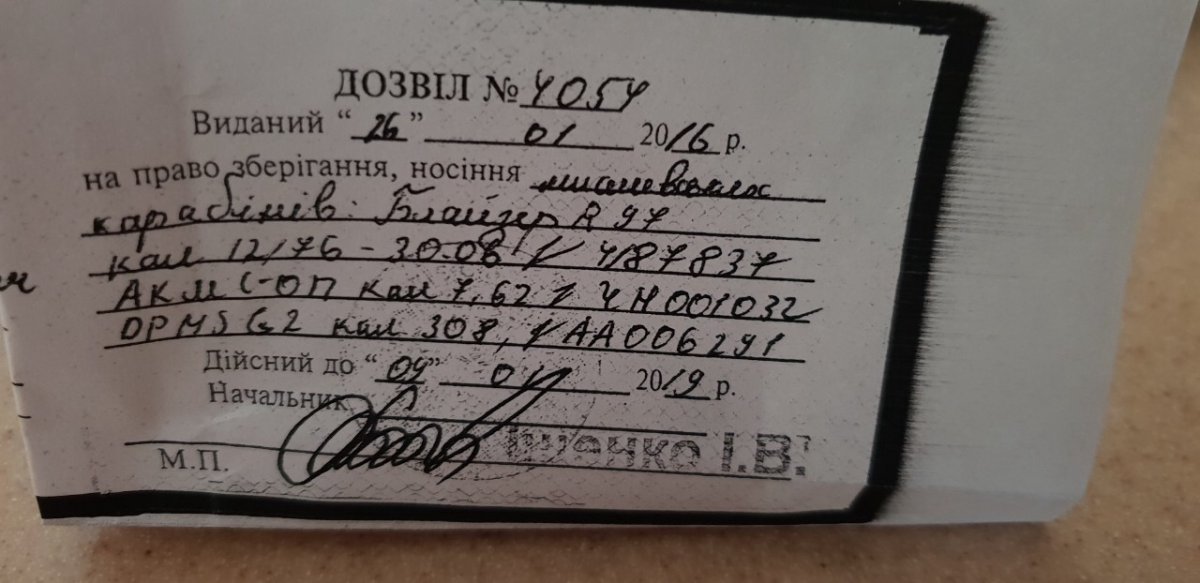 ДОЗВІЛ № 4054
Виданий “26” 01 2016 р.
на право зберігання, носіння мисливських
карабінів: Блайзер R 97
кал 12/76 - 30-06 4/87837
АКМ С-ОП кал 7,62 ЧН001032
DPMS G2 кал 308, АА006291
Дійсний до “09” 01 2019 р.
Начальник
І.В.
М.П.